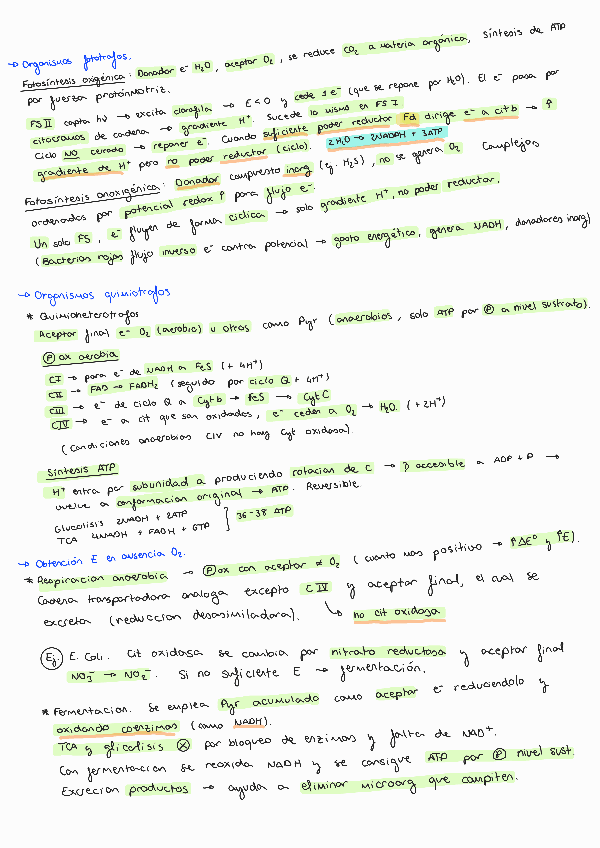 → Organismos fotótrofos.
Fotosíntesis oxigénica: Donador e⁻ H₂O, aceptor O₂, se reduce CO₂ a materia orgánica, síntesis de ATP
por fuerza protónmotriz.
FS II capta hν → excita clorofila → E<0 y cede 1e⁻ (que se repone por H₂O). El e⁻ pasa por
citocromos de cadena → gradiente H⁺. Sucede lo mismo en FS I
Ciclo NO cerrado → reponer e⁻. Cuando suficiente poder reductor Fd dirige e⁻ a cit b → ↑
gradiente de H⁺ pero no poder reductor (ciclo). 2H₂O → 2NADPH + 3ATP
Fotosíntesis anoxigénica: Donador compuesto inorg (eg. H₂S), no se genera O₂ Complejos
ordenados por potencial redox ↑ para flujo e⁻.
Un solo FS, e⁻ fluyen de forma cíclica → solo gradiente H⁺, no poder reductor.
(Bacterias rojas flujo inverso e⁻ contra potencial → gasto energético, genera NADH, donadores inorg)
→ Organismos quimiotrofos
* Quimioheterótrofos
Aceptor final e⁻ O₂ (aerobio) u otros como Pyr (anaerobios, solo ATP por Ⓟ a nivel sustrato).
Ⓟ ox aerobia
CI → para e⁻ de NADH a FeS (+ 4H⁺)
CII → FAD → FADH₂ (seguido por ciclo Q + 4H⁺)
CIII → e⁻ de ciclo Q a Cyt b → FeS → Cyt C
CIV → e⁻ a cit que son oxidados, e⁻ ceden a O₂ → H₂O (+ 2H⁺)
(Condiciones anaerobias CIV no hay Cyt oxidasa).
Síntesis ATP
H⁺ entra por subunidad a produciendo rotacion de C → β accesible a ADP + P →
vuelve a conformacion original → ATP. Reversible
Glucolisis 2NADH + 2ATP
TCA 4NADH + FADH + GTP } 36-38 ATP
→ Obtención E en ausencia O₂.
* Respiracion anaerobia → Ⓟ ox con aceptor ≠ O₂ (cuanto mas positivo → ↑ΔE⁰ y ↑E).
Cadena transportadora analoga excepto CIV y aceptor final, el cual se
excreta (reduccion desasimiladora). ↳ no cit oxidasa
Ej. E. Coli. Cit oxidasa se cambia por nitrato reductasa y aceptor final
NO₃⁻ → NO₂⁻. Si no suficiente E → fermentación.
* Fermentacion. Se emplea Pyr acumulado como aceptor e⁻ reduciendolo y
oxidando coenzimas (como NADH).
TCA y glicolisis Ⓧ por bloqueo de enzimas y falta de NAD⁺.
Con fermentacion se reoxida NADH y se consigue ATP por Ⓟ nivel sust.
Excrecion productos → ayuda a eliminar microorg que compiten.